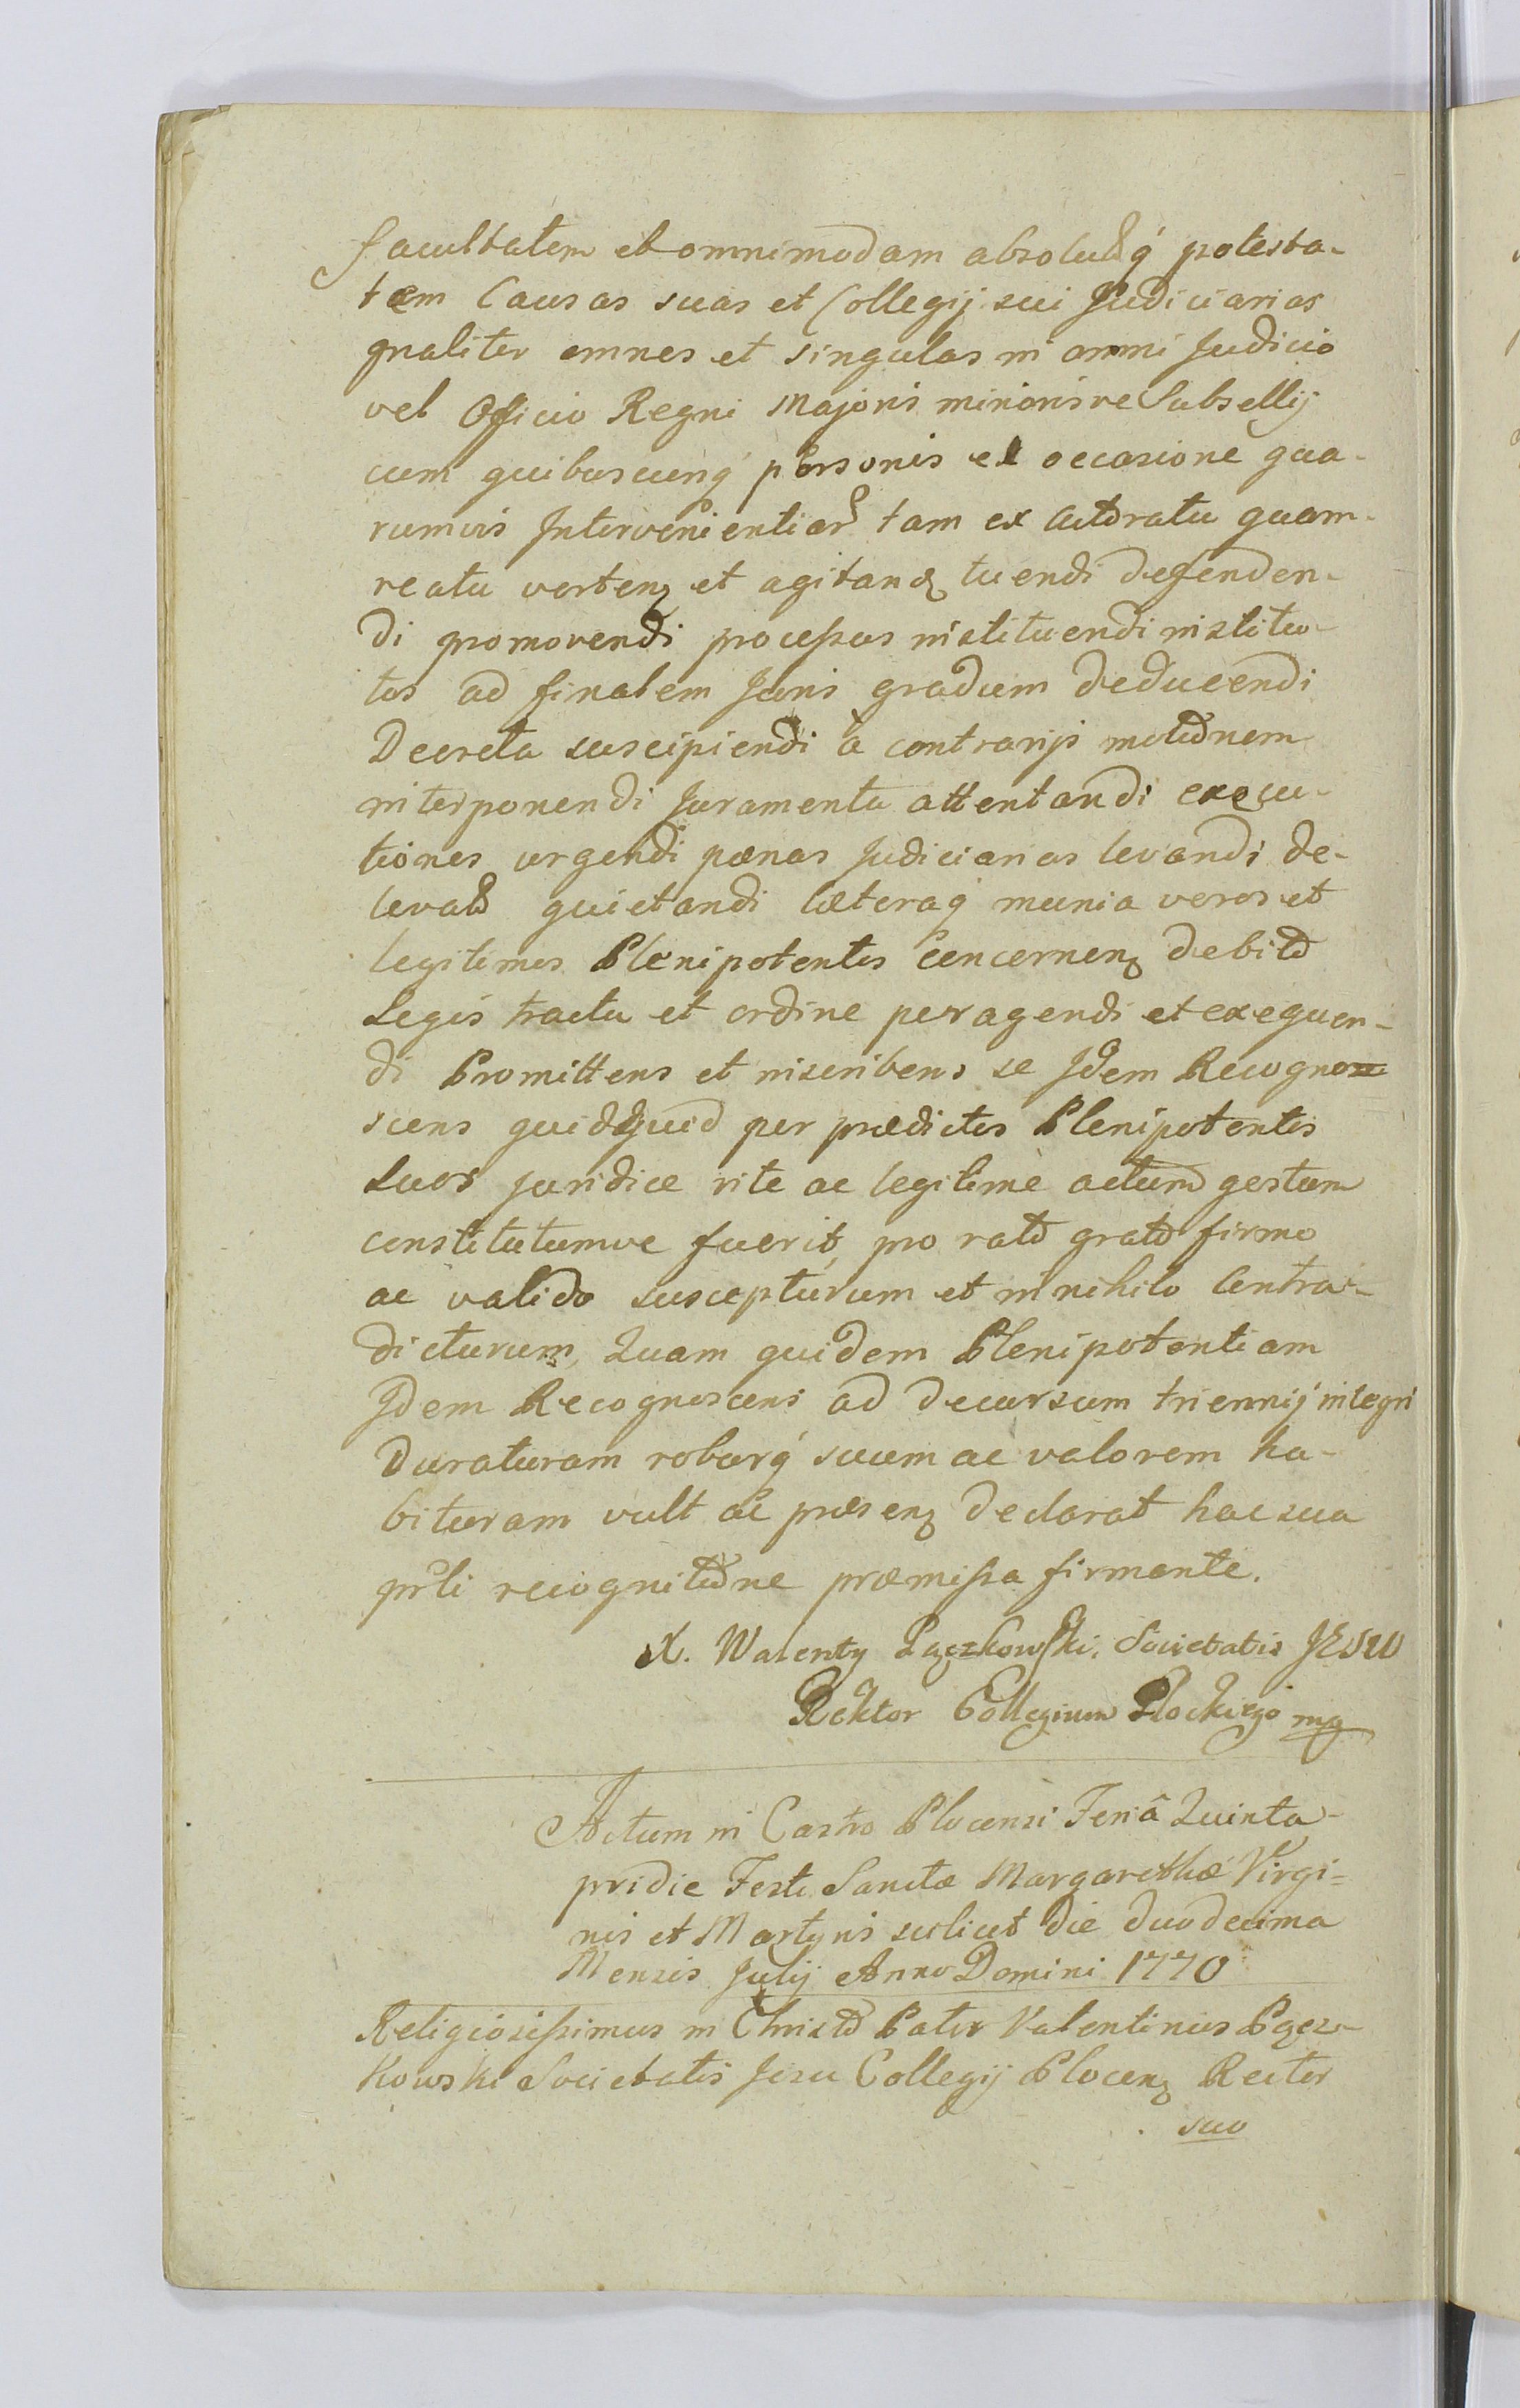 facultatem et omnimodam absolutāq́ potesta-
tem Causas suas et Collegij sui Judiciarias
gnaliter omnes et singulas in omni Judicio
vel Officio Regni Majoris minorisve Subsellij
cum quibuscunq́ personis et occasione qua-
rumvis Intervenientiar̃ tam ex actoratu quam
reatu verten̄ et agitand̄ tuendi defenden-
di promovendi processus instituendi institu-
tos ad finalem Juris gradum deducendi
Decreta suscipiendi a contrarijs motionem
interponendi Juramenta attentandi execu-
tiones urgendi pœnas Judiciarias levandi de
levatis quietandi cæteraq́ munia veros et
legitimos Plenipotentes concernen̄ debito
Legis tractu et ordine peragendi et exequen-
di Promittens et inscribens se Jdem Recogno
scens quidquid per prædictos Plenipotentes
Suos juridice rite ac legitime actum gestum
constitutumve fuerit, pro rato grato firmo
ac valido suscepturum et in nihilo Contra-
dicturum, Quam quidem Plenipotentiam
Jdem Recognoscens ad decursum triennij integri
Duraturam roburq́ suum ac valorem ha-
bituram vult ac præsen̄ declarat hac sua
pr̄li recognitione præmissa firmante.
X. Walenty Pączkowski, Societatis JESU
Rektor Collegium Plockiego mp
Actum in Castro Plocensi Feriâ Quinta
pridie Festi Sanctæ Margarethæ Virgi=
nis et Martyris scilicet die duodecima
Mensis Julij Anno Domini 1770
Religiosissimus in Christo Pater Valentinus Pącz-
kowski Societatis Jesu Collegij Plocen̄ Rector
suo